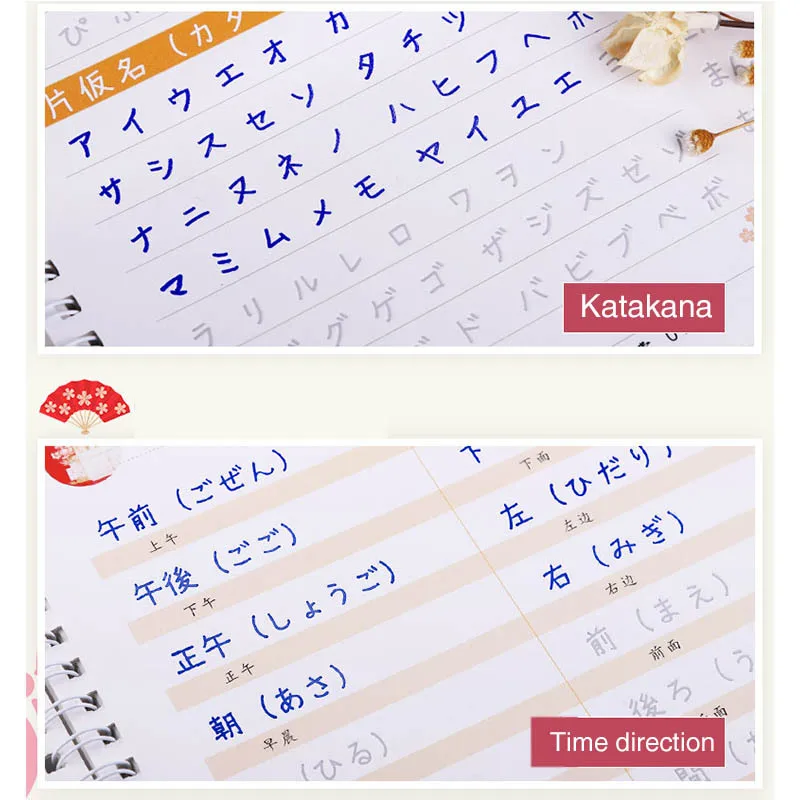 片仮名（カタ
アイウエオ カ
サシスセソ タチツ
ナニヌネノ ハヒフヘホ
マミムメモ ヤイユエ
ラリルレロ ワヲン
グゲゴ ザジズゼゾ
ド バビブベボ
まん
Katakana
午前（ごぜん）
上午
午後（ごご）
下午
正午（しょうご）
正午
朝（あさ）
早晨
（ひる）
下
下面
左（ひだり）
左边
右（みぎ）
右边
前（まえ）
前面
後ろ（う
面
間
Time direction